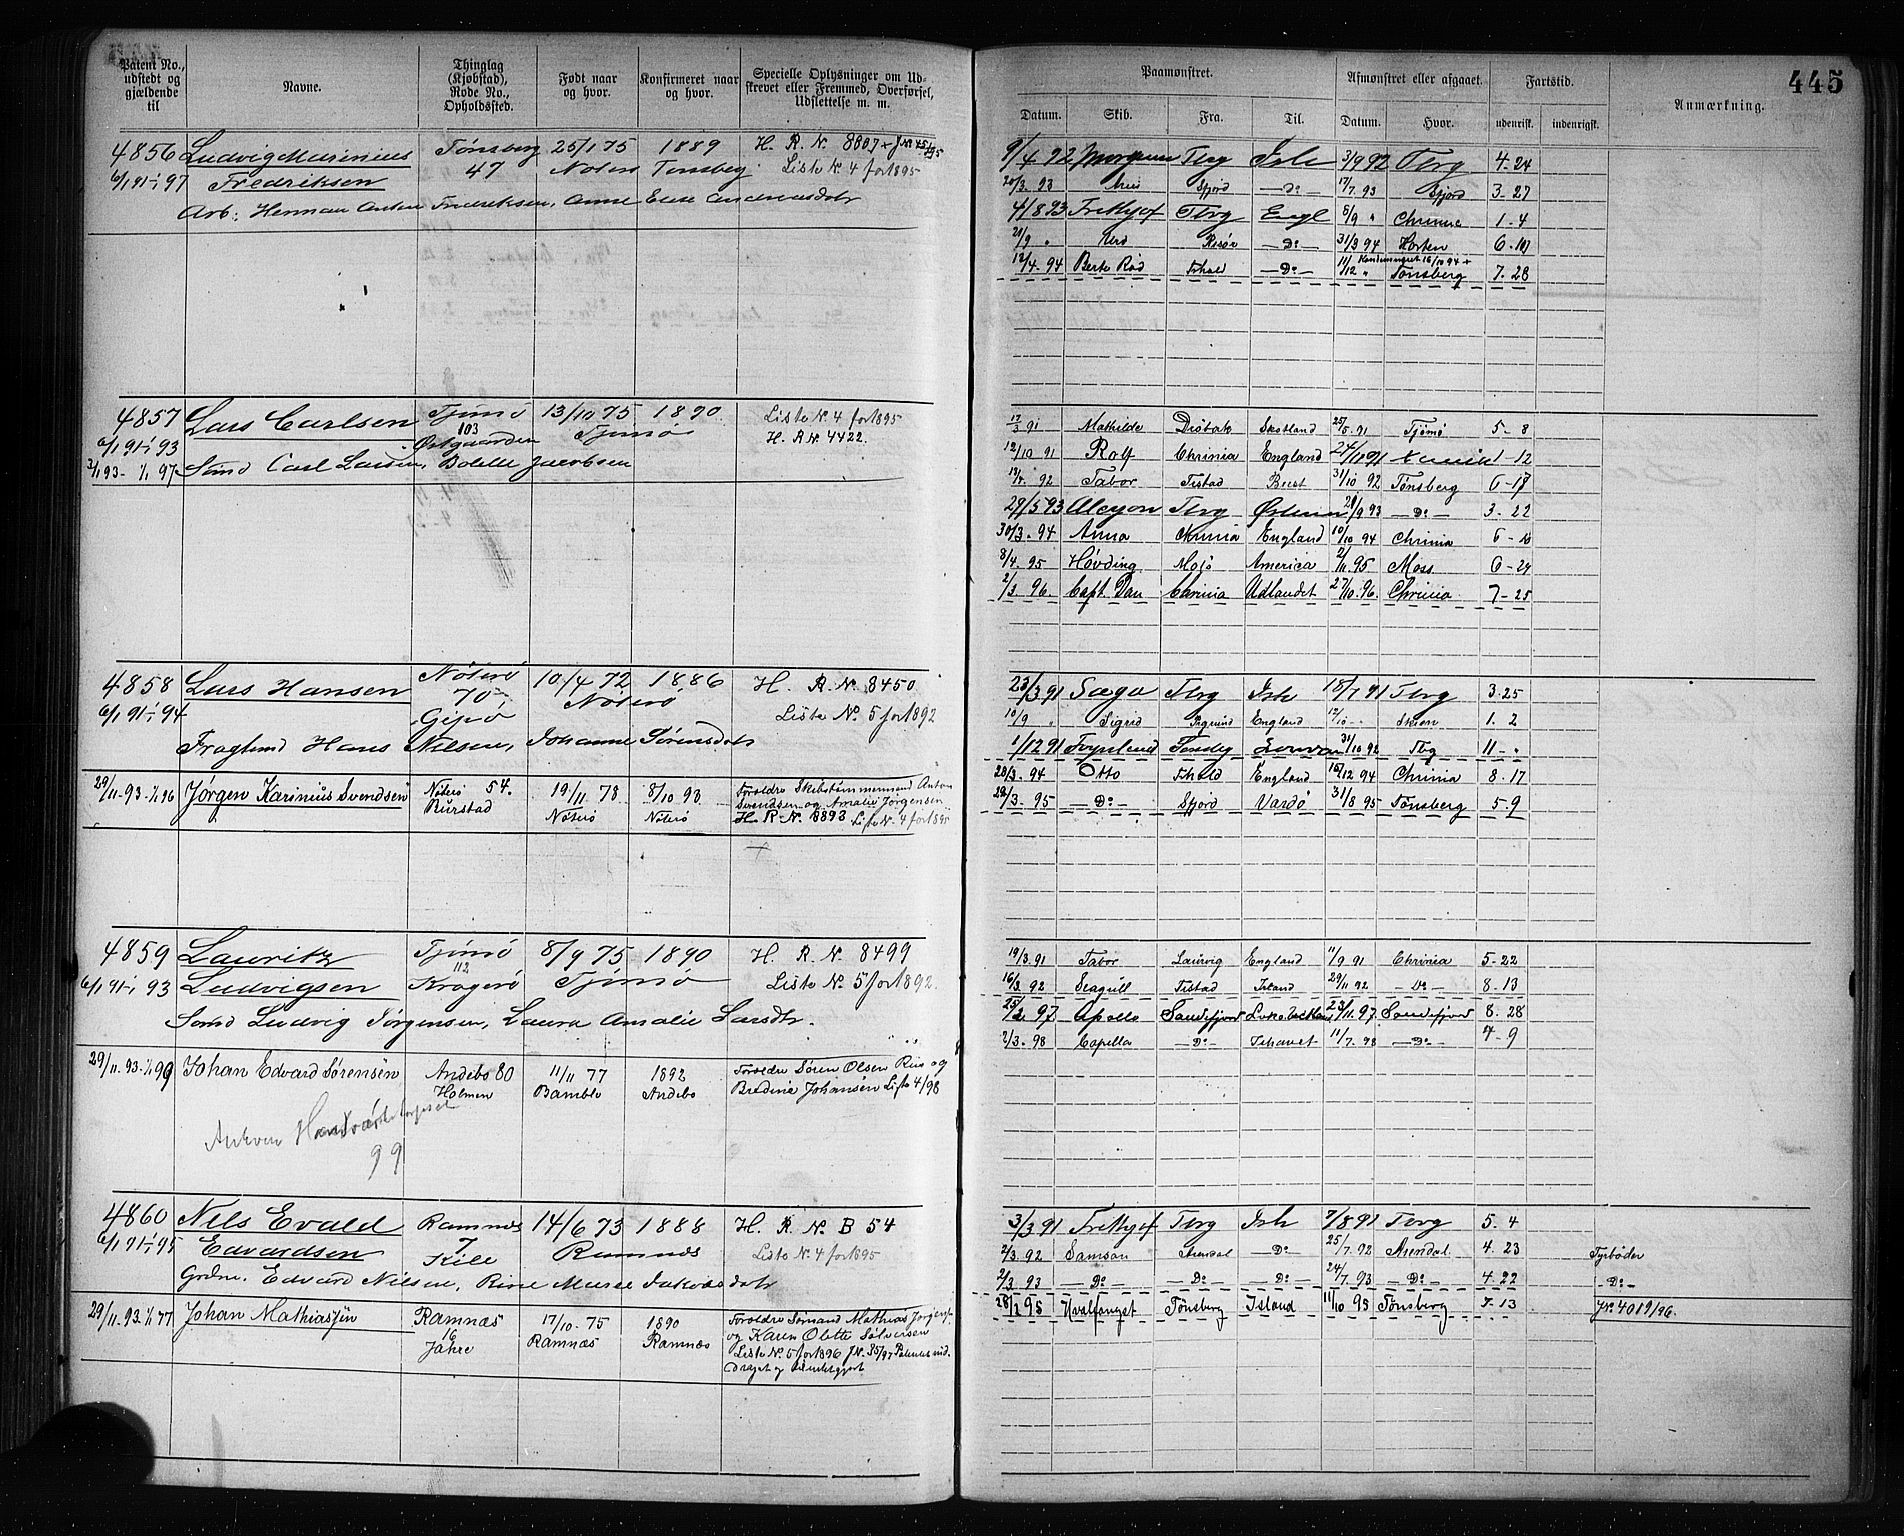 445
Patent No., udstedt og gjældende til
Navne.
Thinglag (Kjøbstad), Rode No., Opholdssted.
Født naar og hvor.
Konfirmeret naar og hvor.
Specielle Oplysninger om Udskrevet eller Fremmed, Overførsel, Udslettelse m. m.
Paamønstret.
Afmønstret eller afgaaet.
Fartstid.
Anmærkning.
Datum. Skib. Fra. Til. Datum. Hvor. udenrisk. indenrigsk.
4856 Ludvig Marinius Tønsberg 25/1 75 1889 H. R. N. 8807
6/1 91-1/1 97 Fredriksen 47 Nøterø Tønsberg Liste N. 4 for 1895
Arb: Herman Anton Fredriksen, Anne Elise Andreasdatr
9/4 92 Morgenen Tbrg Ish 3/9 92 Tbrg 4-24
20/3 93 Sfjord -Do- 17/7 93 Sfjord 3-27
4/8 93 Frithjof Tbrg Engl 5/9 " Chrinia 1-4
21/9 " Risør -Do- 31/3 94 Horten 6-10
12/4 94 Berte Rød Fhald -Do- 11/12 " Tønsberg 7-28
4857 Lars Carlsen Tjømø 13/11 75 1890 Liste N. 4 for 1895
6/1 91-1/1 93 103 Østgaarden Tjømø H. R. N. 4422.
3/1 93-1/1 97 Sømd Carl Larsen, Bolette Jacobsen
17/3 91 Mathilde Drøbak Skotland 25/5 91 Tjømø 5-8
12/10 91 Rolf Chrinia England 24/11 91 1-12
13/4 92 Tabor Fistad Brest 31/10 92 Tønsberg 6-18
29/5 93 Alcyon Tbrg 21/9 93 -Do- 3-22
30/3 94 Anna Chrinia England 10/10 94 Chrinia 6-10
8/4 95 Høvding Mosø America 2/11 95 Moss 6-24
2/3 96. Capt. Dan Chrinia Udlandet 27/10 96. Chrinia 7-25
4858 Lars Hansen Nøterø 10/4 72 1886 H. R. N. 8450
6/1 91-1/1 94 70 Gipø Nøterø Liste No. 5 for 1892
Fragtmd Hans Nilsen, Johanne Sørensdatr
23/3 91 Saga Tbrg Ish 18/7 91 Tbrg 3-25
10/9 " Sigrid England 12/10 " Skien 1-2
1/12 91 31/10 92 Tbg 11-"
28/3. 94 Otto Fhald England 15/12 94 Chrinia 8-17
29/3. 95 -Do- Sfjord Vardø 31/8 95 Tønsberg 5-9
29/11-93-1/1 96 Jørgen Karinius Svendsen Nøterø 54. 19/11 78 8/10 93 Forældre Skibstømmermand Anton
Burstad Nøterø Nøterø Svendsen og Amalie Jørgensen
H. R. N. 8893 Liste N. 4 for 1895
4859 Lauritz Tjømø 8/9 75 1890 H. R. N. 8499
6/1 91-1/1 93 Ludvigsen 112 Kragerø Tjømø Liste No. 5 for 1892.
Sømd Ludvig Jørgensen, Laura Amalie Larsdtr.
19/3. 91 Tabor Laurvig England 11/9 91 Chrinia 5-22
16/3 92 Seagull Fistad Island 29/11 92 -Do- 8-13
25/2 97 Apollo Sandefjord 23/11 97 Sandefjord 8-28
2/3-98 Capella -Do- Ishavet 11/7 98 -Do- 4-9
29/11-93-1/1 99 Johan Edvard Sørensen Andebo 80 11/11 77 1892 Forældre Søren Olsen Riis og
Holmen Bamble Andebo Bredine Johansen Liste 4/98
99
4860 Nils Evald Ramnæs 14/6 73 1888 H. R. N. B 54
6/1 91-1/1 95 Edvardsen 7 Kile Ramnæs Liste N. 4 for 1895
Grdm. Edvard Nilsen, Maree Jakobsdatr
3/3 91 Frithjof Tbrg Ish 7/8 91 Tbrg 5-4
2/3. 92 Samson Arendal -Do- 25/7. 92 Arendal 4. 23 Fyrbøder
2/3 93 -Do- -Do- -Do- 24/7. 93 -Do- 4. 22 -Do-
28/2 95 Hvalfanget Tønsberg Island 11/10 95 Tønsberg 7-13 JN. 4019/96.
29/11-93-1/1 77 Johan Mathiassen Ramnæs 17/10-75 1890 Forældre Sømand Mathias Jørgens.
16 Jahre Ramnæs Ramnæs og Karen Olette Sølversen
Liste N. 5 for 1896 JN. 35/97 Patentet ind-
draget og